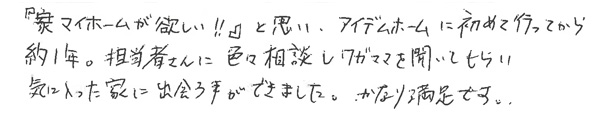 『家 マイホームが欲しい!!』と思い、アイデムホームに初めて行ってから
約1年。担当者さんに色々相談しワガママを聞いてもらい
気に入った家に出会う事ができました。かなり満足です。